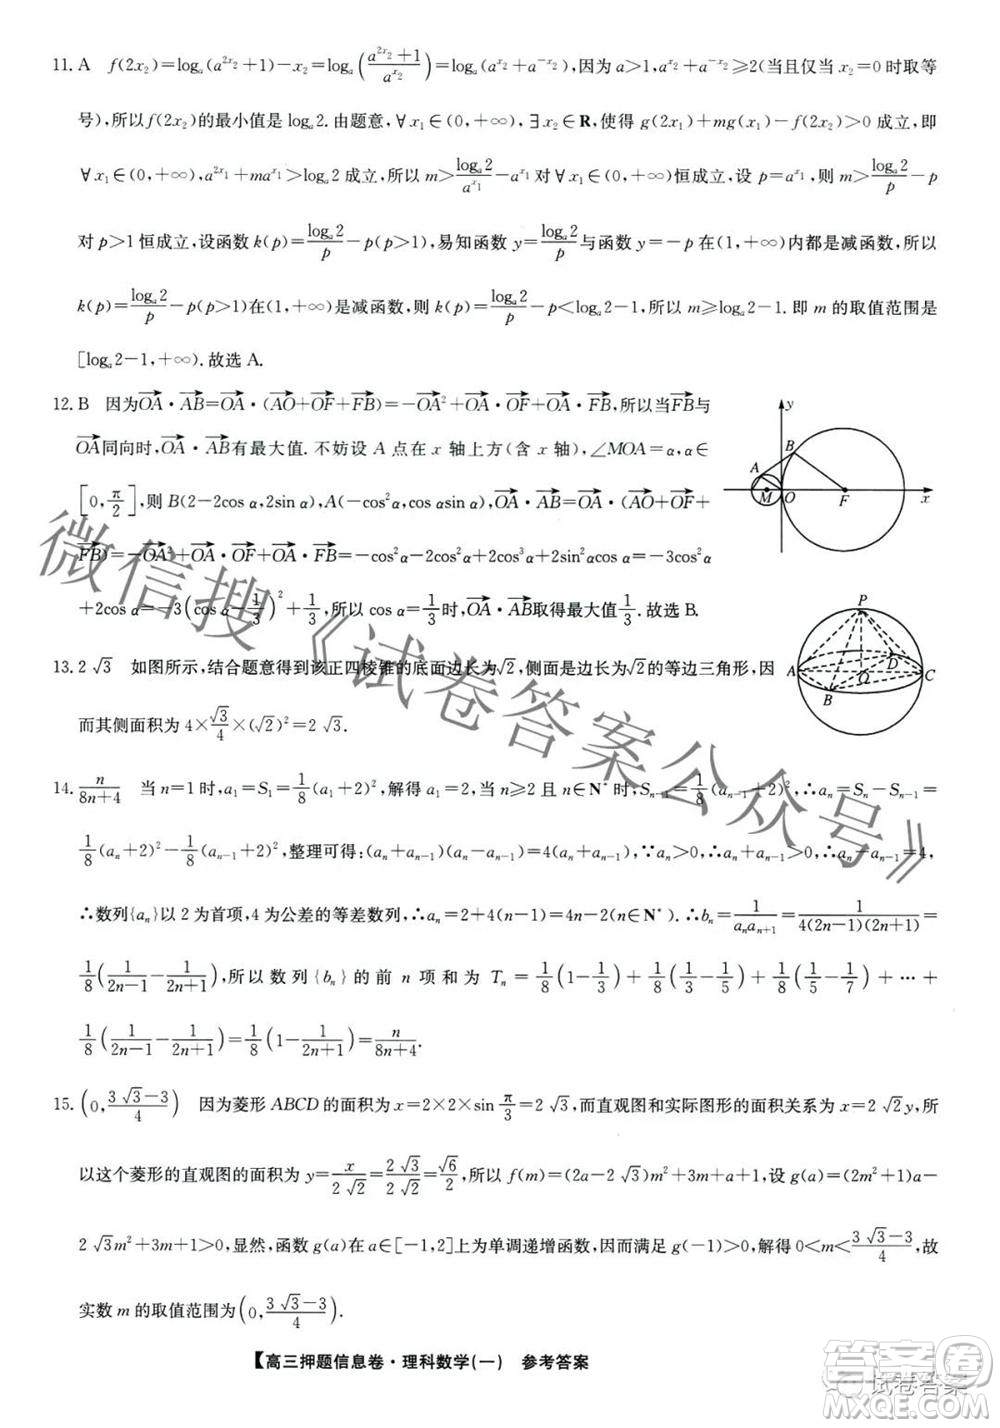 11. A　f(2x₂)=logₐ(a^{2x₂}+1)−x₂=logₐ((a^{2x₂}+1)/a^{x₂})=logₐ(a^{x₂}+a^{−x₂}),因为 a>1,a^{x₂}+a^{−x₂}≥2(当且仅当 x₂=0 时取等
号),所以 f(2x₂)的最小值是 logₐ2. 由题意,∀x₁∈(0,+∞),∃x₂∈R,使得 g(2x₁)+mg(x₁)−f(2x₂)>0 成立,即
∀x₁∈(0,+∞),a^{2x₁}+ma^{x₁}>logₐ2 成立,所以 m>logₐ2/a^{x₁}−a^{x₁} 对∀x₁∈(0,+∞)恒成立,设 p=a^{x₁},则 m>logₐ2/p−p
对 p>1 恒成立,设函数 k(p)=logₐ2/p−p(p>1),易知函数 y=logₐ2/p 与函数 y=−p 在(1,+∞)内都是减函数,所以
k(p)=logₐ2/p−p(p>1)在(1,+∞)是减函数,则 k(p)=logₐ2/p−p<logₐ2−1,所以 m≥logₐ2−1. 即 m 的取值范围是
[logₐ2−1,+∞).故选 A.
12. B　因为 OA→·AB→=OA→·(AO→+OF→+FB→)=−OA→²+OA→·OF→+OA→·FB→,所以当 FB→ 与
OA→ 同向时,OA→·AB→ 有最大值. 不妨设 A 点在 x 轴上方(含 x 轴),∠MOA=α,α∈
[0,π/2],则 B(2−2cos α,2sin α),A(−cos²α,cos αsin α),OA→·AB→=OA→·(AO→+OF→+
FB→)=−OA→²+OA→·OF→+OA→·FB→=−cos²α−2cos²α+2cos³α+2sin²αcos α=−3cos²α
+2cos α=−3(cos α−1/3)²+1/3,所以 cos α=1/3时,OA→·AB→取得最大值1/3.故选 B.
y
A
B
M
O
F
x
13. 2√3　如图所示,结合题意得到该正四棱锥的底面边长为√2,侧面是边长为√2的等边三角形,因
而其侧面积为 4×√3/4×(√2)²=2√3.
P
A
D
O
C
B
14. n/(8n+4)　当 n=1 时,a₁=S₁=1/8(a₁+2)²,解得 a₁=2,当 n≥2 且 n∈N* 时,Sₙ₋₁=1/8(aₙ₋₁+2)²,∴aₙ=Sₙ−Sₙ₋₁=
1/8(aₙ+2)²−1/8(aₙ₋₁+2)²,整理可得:(aₙ+aₙ₋₁)(aₙ−aₙ₋₁)=4(aₙ+aₙ₋₁),∵aₙ>0,∴aₙ+aₙ₋₁>0,∴aₙ−aₙ₋₁=4,
∴数列{aₙ}以 2 为首项,4 为公差的等差数列,∴aₙ=2+4(n−1)=4n−2(n∈N*).∴bₙ=1/(aₙaₙ₊₁)=1/(4(2n−1)(2n+1))=
1/8(1/(2n−1)−1/(2n+1)),所以数列{bₙ}的前 n 项和为 Tₙ=1/8(1−1/3)+1/8(1/3−1/5)+1/8(1/5−1/7)+…+
1/8(1/(2n−1)−1/(2n+1))=1/8(1−1/(2n+1))=n/(8n+4).
15. (0,(3√3−3)/4)　因为菱形 ABCD 的面积为 x=2×2×sin π/3=2√3,而直观图和实际图形的面积关系为 x=2√2y,所
以这个菱形的直观图的面积为 y=x/(2√2)=2√3/(2√2)=√6/2,所以 f(m)=(2a−2√3)m²+3m+1,设 g(a)=(2m²+m)a−
2√3m²+3m+1>0,显然,函数 g(a)在 a∈[−1,2]上为单调递增函数,因而满足 g(−1)>0,解得 0<m<(3√3−3)/4,故
实数 m 的取值范围为(0,(3√3−3)/4).
【高三押题信息卷·理科数学(一)　参考答案
微信搜《试卷答案公众号》
试卷答案
答案圈
MXQE.COM